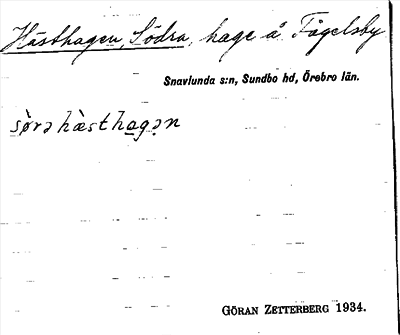 Hästhagen, Södra, hage å Fågelsby
Snavlunda s:n, Sundbo hd, Örebro län.
sø̀rə hæ̀sthagən
GÖRAN ZETTERBERG 1934.